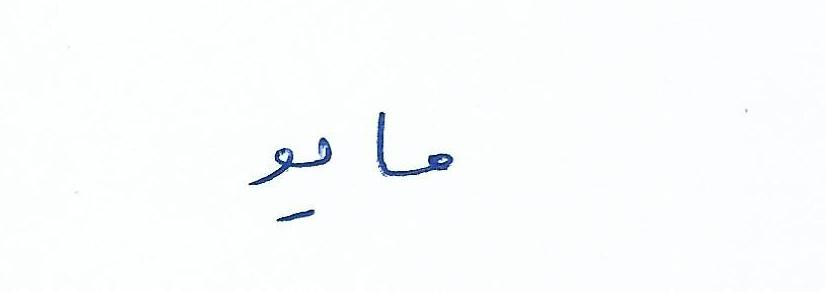 مايو